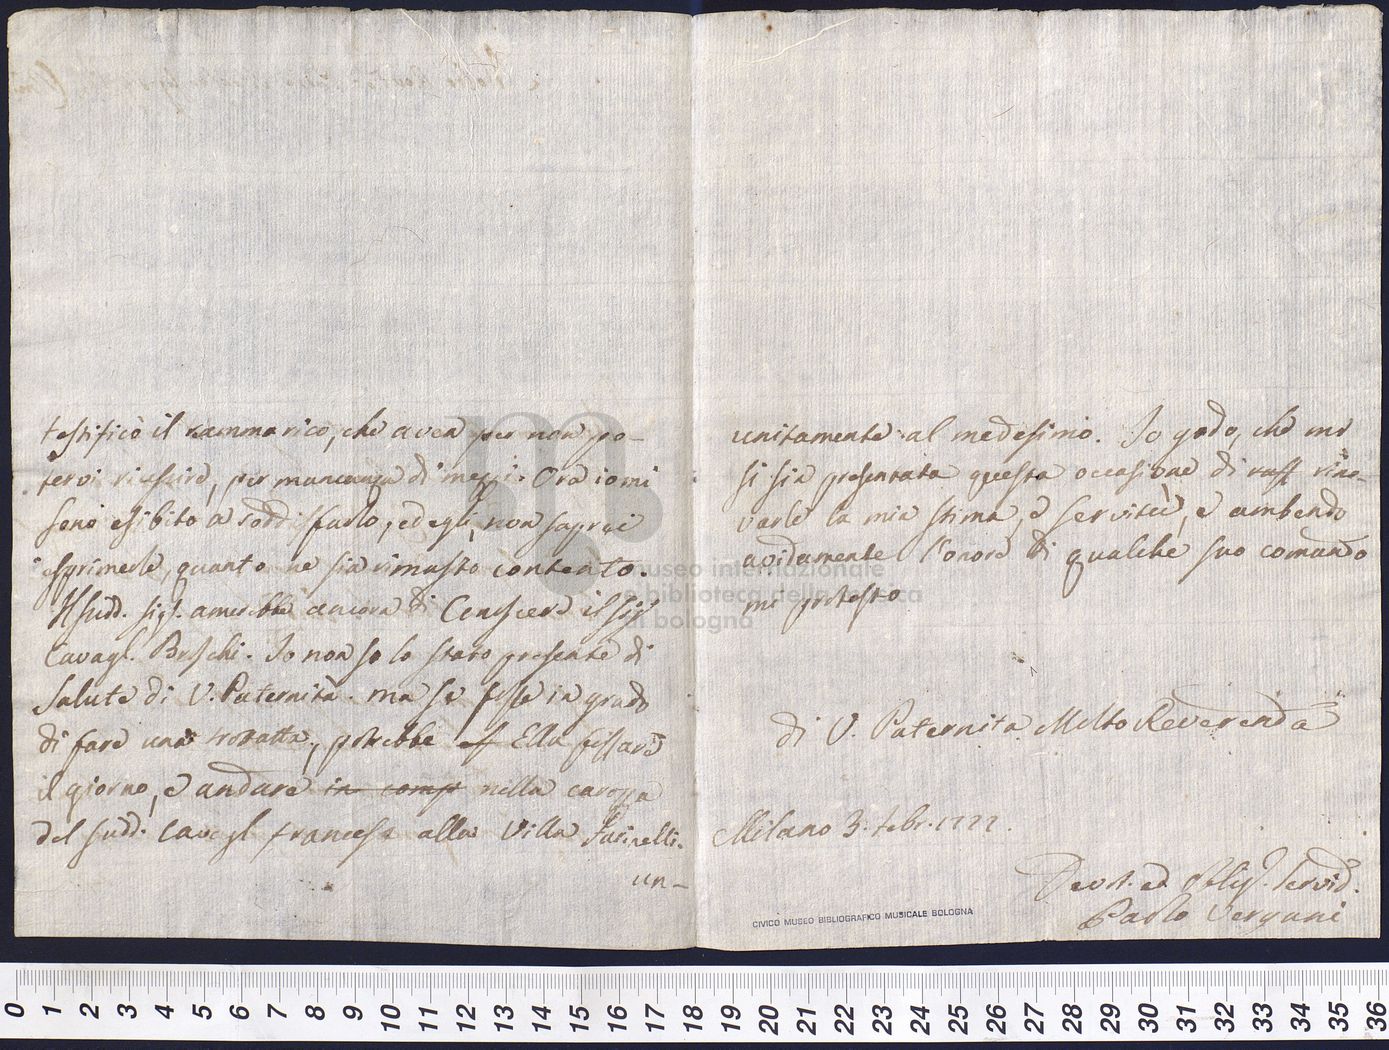 testificò il rammarico, che avea per non po-
tervi riuscire, per mancanza di mezzi. Ora io mi
sono esibito a soddisfarlo, ed egli, non saprei
esprimerle, quanto ne sia rimasto contento.
Il sudd. sig.r amerebbe ancora di Conoscere il sig.r
Cavagl. Broschi. Io non so lo stato presente di
salute di V. Paternità. ma se fosse in grado
di fare una trottatta, potrebbe Ella fissare
il giorno, e andare in comp nella carozza
del sudd. Cavagl francese alla Villa Farinelli.
un-
unitamente al medesimo. Io godo, che mi
si sia presentata questa occasione di raff rino-
varle la mia stima, e servitù, e ambendo
avidamente l'onore di qualche suo comando
mi protesto
di V. Paternita Molto Reverenda
Milano 3. febr. 1777.
Devot. ed Oblig. Servid.
Paolo Vergani
CIVICO MUSEO BIBLIOGRAFICO MUSICALE BOLOGNA
museo internazionale
e biblioteca della musica
di bologna
0 1 2 3 4 5 6 7 8 9 10 11 12 13 14 15 16 17 18 19 20 21 22 23 24 25 26 27 28 29 30 31 32 33 34 35 36